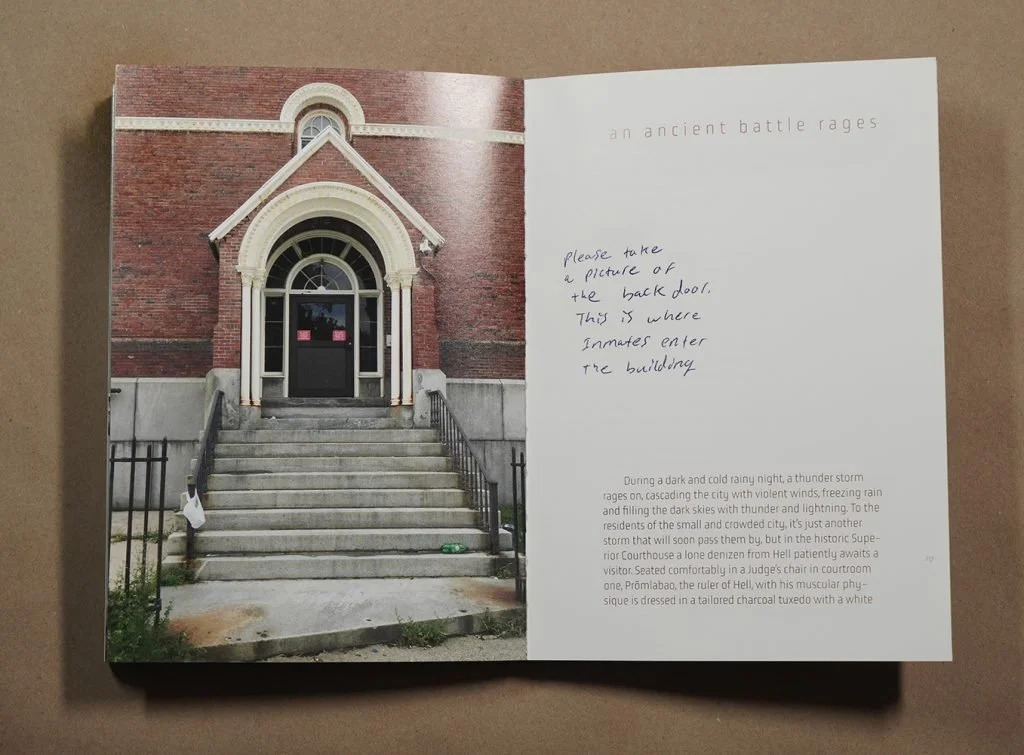 an ancient battle rages
Please take
a picture of
the back door.
This is where
Inmates enter
The building
During a dark and cold rainy night, a thunder storm
rages on, cascading the city with violent winds, freezing rain
and filling the dark skies with thunder and lightning. To the
residents of the small and crowded city, it's just another
storm that will soon pass them by, but in the historic Supe-
rior Courthouse a lone denizen from Hell patiently awaits a
visitor. Seated comfortably in a Judge's chair in courtroom
one, Prōmlabao, the ruler of Hell, with his muscular phy-
sique is dressed in a tailored charcoal tuxedo with a white